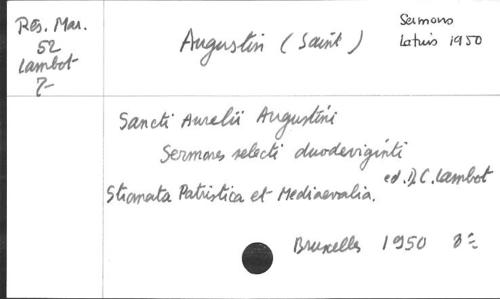 Rés. Mar.
52
Lambot
7-
Augustin (Saint)
Sermons
latins 1950
Sancti Aurelii Augustini
Sermones selecti duodeviginti
ed. D. C. Lambot
Stromata Patristica et Mediaevalia.
Bruxelles 1950 8°